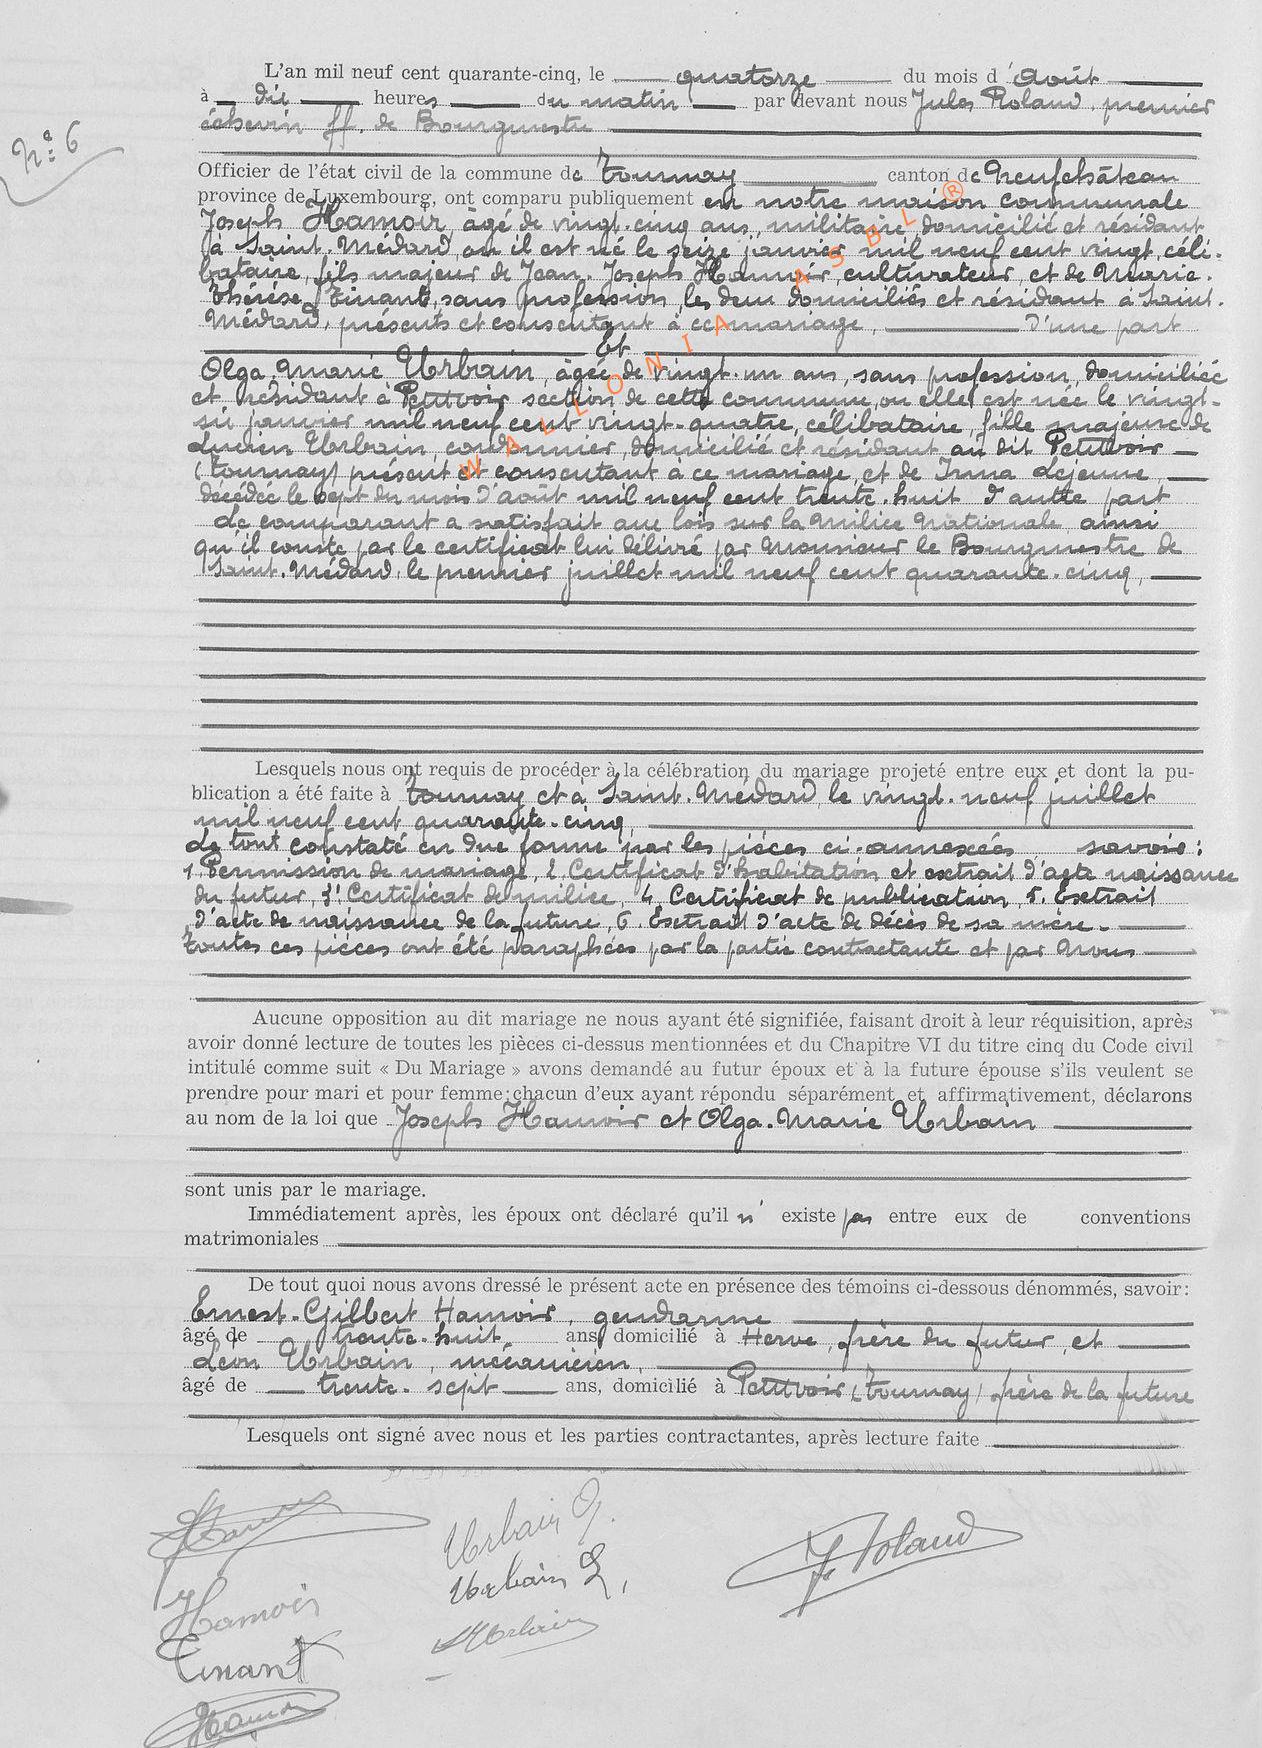 L'an mil neuf cent quarante-cinq, le quatorze du mois d'Août
à dix heures du matin par devant nous Jules Roland, premier
échevin ff. de Bourgmestre
N° 6
Officier de l'état civil de la commune de Tournay canton de Neufchâteau
province de Luxembourg, ont comparu publiquement en notre maison communale
Joseph Hamoir, âgé de vingt-cinq ans, militaire, domicilié et résidant
à Saint-Médard, où il est né le seize janvier mil neuf cent vingt, céli-
bataire, fils majeur de Jean-Joseph Hamoir, cultivateur, et de Marie-
Thérèse Tinant, sans profession, les deux domiciliés et résidant à Saint-
Médard, présents et consentant à ce mariage, d'une part
Et
Olga-Marie Urbain, âgée de vingt-un ans, sans profession, domiciliée
et résidant à Petitvoir section de cette commune, où elle est née le vingt-
six janvier mil neuf cent vingt-quatre, célibataire, fille majeure de
Lucien Urbain, cordonnier, domicilié et résidant au dit Petitvoir
(Tournay) présent et consentant à ce mariage, et de Irma Lejeune,
décédée le sept du mois d'août mil neuf cent trente-huit d'autre part
Le comparant a satisfait aux lois sur la Milice Nationale ainsi
qu'il conste par le certificat lui délivré par Monsieur le Bourgmestre de
Saint-Médard, le premier juillet mil neuf cent quarante-cinq,
WALLONIA ASBL ®
Lesquels nous ont requis de procéder à la célébration du mariage projeté entre eux et dont la pu-
blication a été faite à Tournay et à Saint-Médard, le vingt-neuf juillet
mil neuf cent quarante-cinq,
de tout constaté en due forme par les pièces ci-annexées savoir :
1. Permission de mariage, 2. Certificat d'habitation et extrait d'acte naissance
du futur, 3. Certificat de milice, 4. Certificat de publication, 5. Extrait
d'acte de naissance de la future, 6. Extrait d'acte de décès de sa mère.
Toutes ces pièces ont été paraphées par la partie contractante et par Nous
Aucune opposition au dit mariage ne nous ayant été signifiée, faisant droit à leur réquisition, après
avoir donné lecture de toutes les pièces ci-dessus mentionnées et du Chapitre VI du titre cinq du Code civil
intitulé comme suit « Du Mariage » avons demandé au futur époux et à la future épouse s'ils veulent se
prendre pour mari et pour femme; chacun d'eux ayant répondu séparément et affirmativement, déclarons
au nom de la loi que Joseph Hamoir et Olga-Marie Urbain
sont unis par le mariage.
Immédiatement après, les époux ont déclaré qu'il n' existe pas entre eux de conventions
matrimoniales
De tout quoi nous avons dressé le présent acte en présence des témoins ci-dessous dénommés, savoir:
Ernest-Gilbert Hamoir, gendarme
âgé de trente-huit ans, domicilié à Herve, frère du futur, et
Léon Urbain, mécanicien,
âgé de trente-sept ans, domicilié à Petitvoir (Tournay) frère de la future
Lesquels ont signé avec nous et les parties contractantes, après lecture faite
Hamoir Urbain O. J. Roland
Urbain L.
Hamoir LUrbain
Tinant
Hamoir